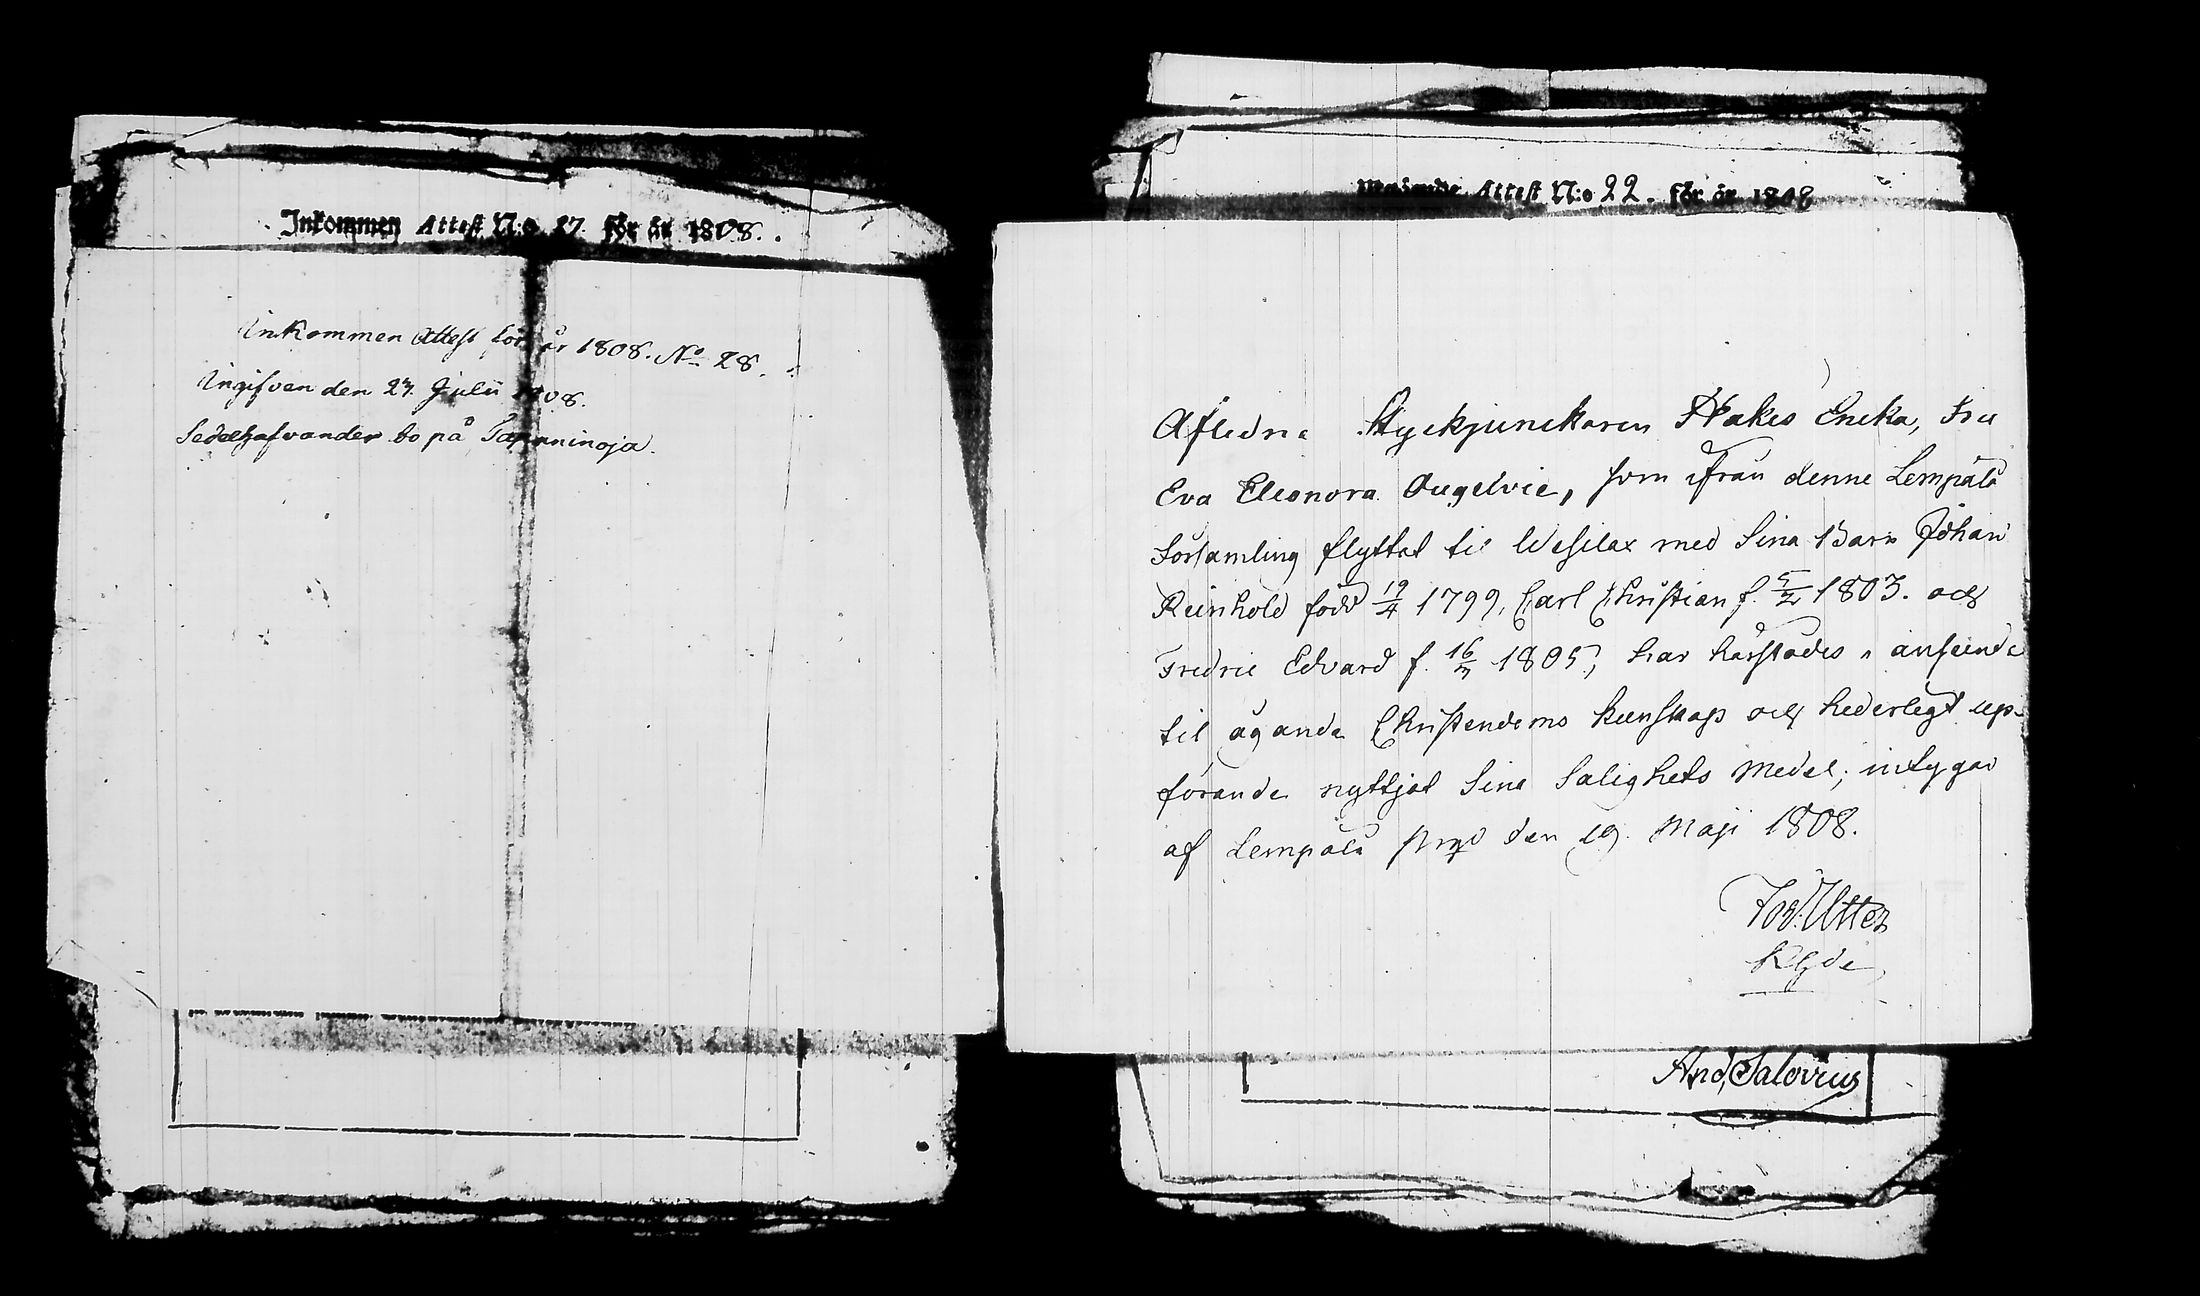 Inkommen Attest N:o 27. för år 1808.
Inkommen Attest för år 1808. No 28.
Ingifven den 27. Julii 1808.
Sedelhafvander bo på Tapaninoja.
Attest N:o 22. för år 1808
Afledne Styckjunckaren Hakes Encka, Fru
Eva Eleonora Ougelvie, som ifrån denne Lempälä
Församling flyttat til Wesilax med Sina Barn Johan
Reinhold född 19/4 1799, Carl Christian f. 5/2 1803. och
Fredric Edvard f. 16/3 1805, har härstädes i anseende
til ägande Christendoms kunskap och hederligt up-
förande nyttjat Sina Salighets Medel; intygar
af Lempälä den 19. Maji 1808.
Utter
And, Salovius